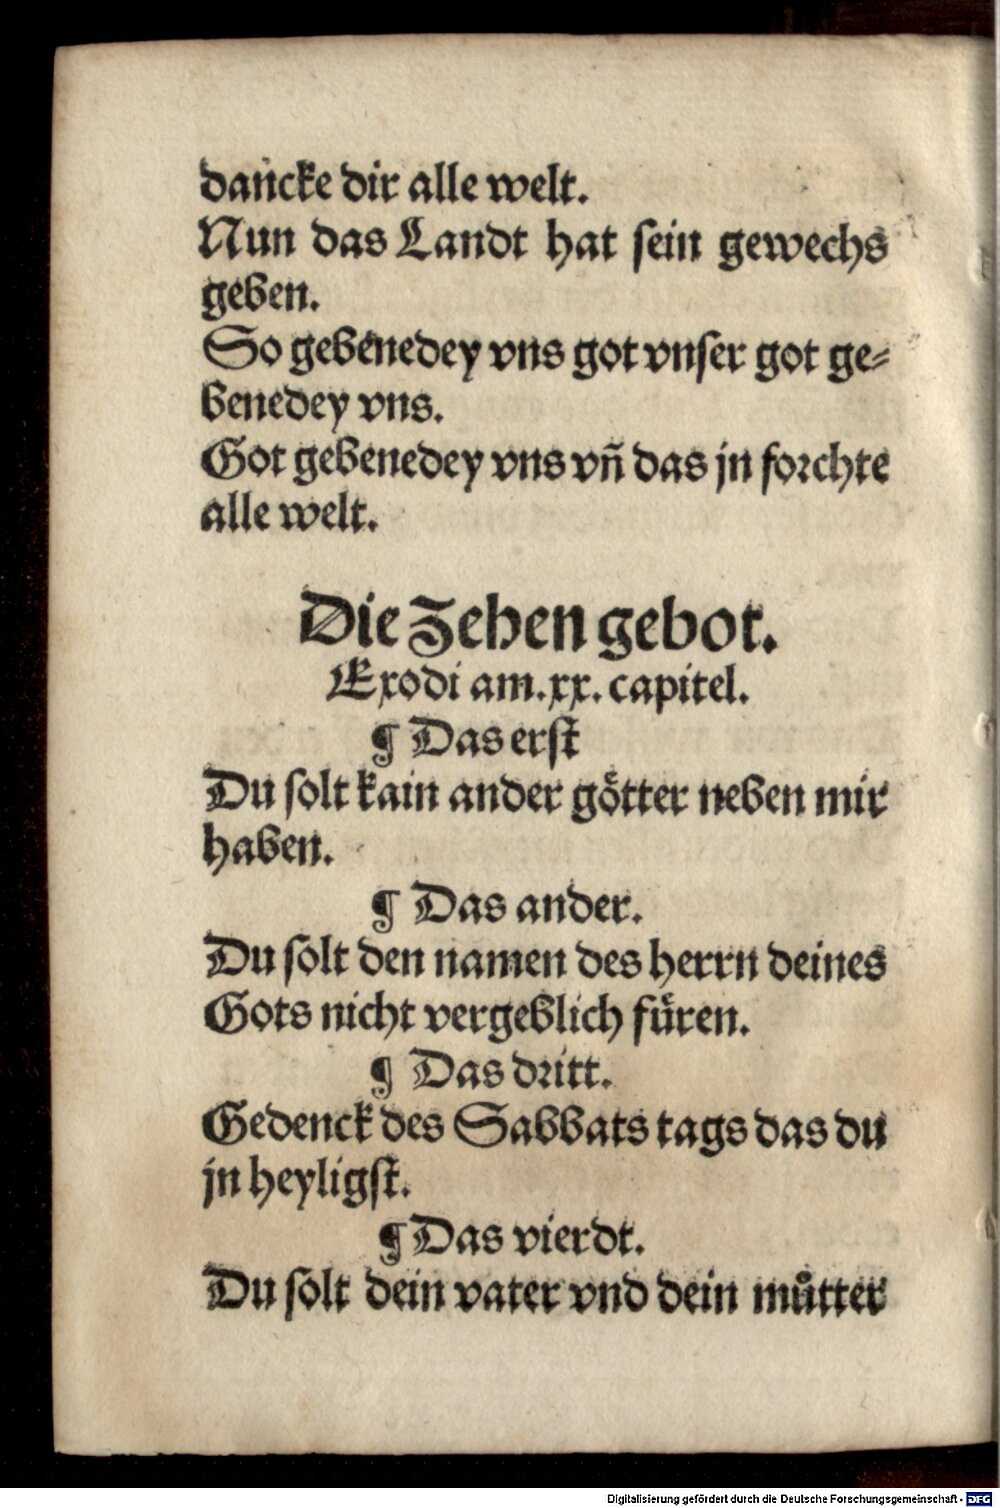 dancke dir alle welt.
Nun das Landt hat sein gewechs
geben.
So gebenedey vns got vnser got ge⸗
benedey vns.
Got gebenedey vns vñ das jn forchte
alle welt.
Die Zehen gebot.
Exodi am .xx. capitel.
¶ Das erst
Du solt kain ander götter neben mir
haben.
¶ Das ander.
Du solt den namen des herrn deines
Gots nicht vergeblich füren.
¶ Das dritt.
Gedenck des Sabbats tags das du
jn heyligst.
¶ Das vierdt.
Du solt dein vater vnd dein můtter
Digitalisierung gefördert durch die Deutsche Forschungsgemeinschaft - DFG